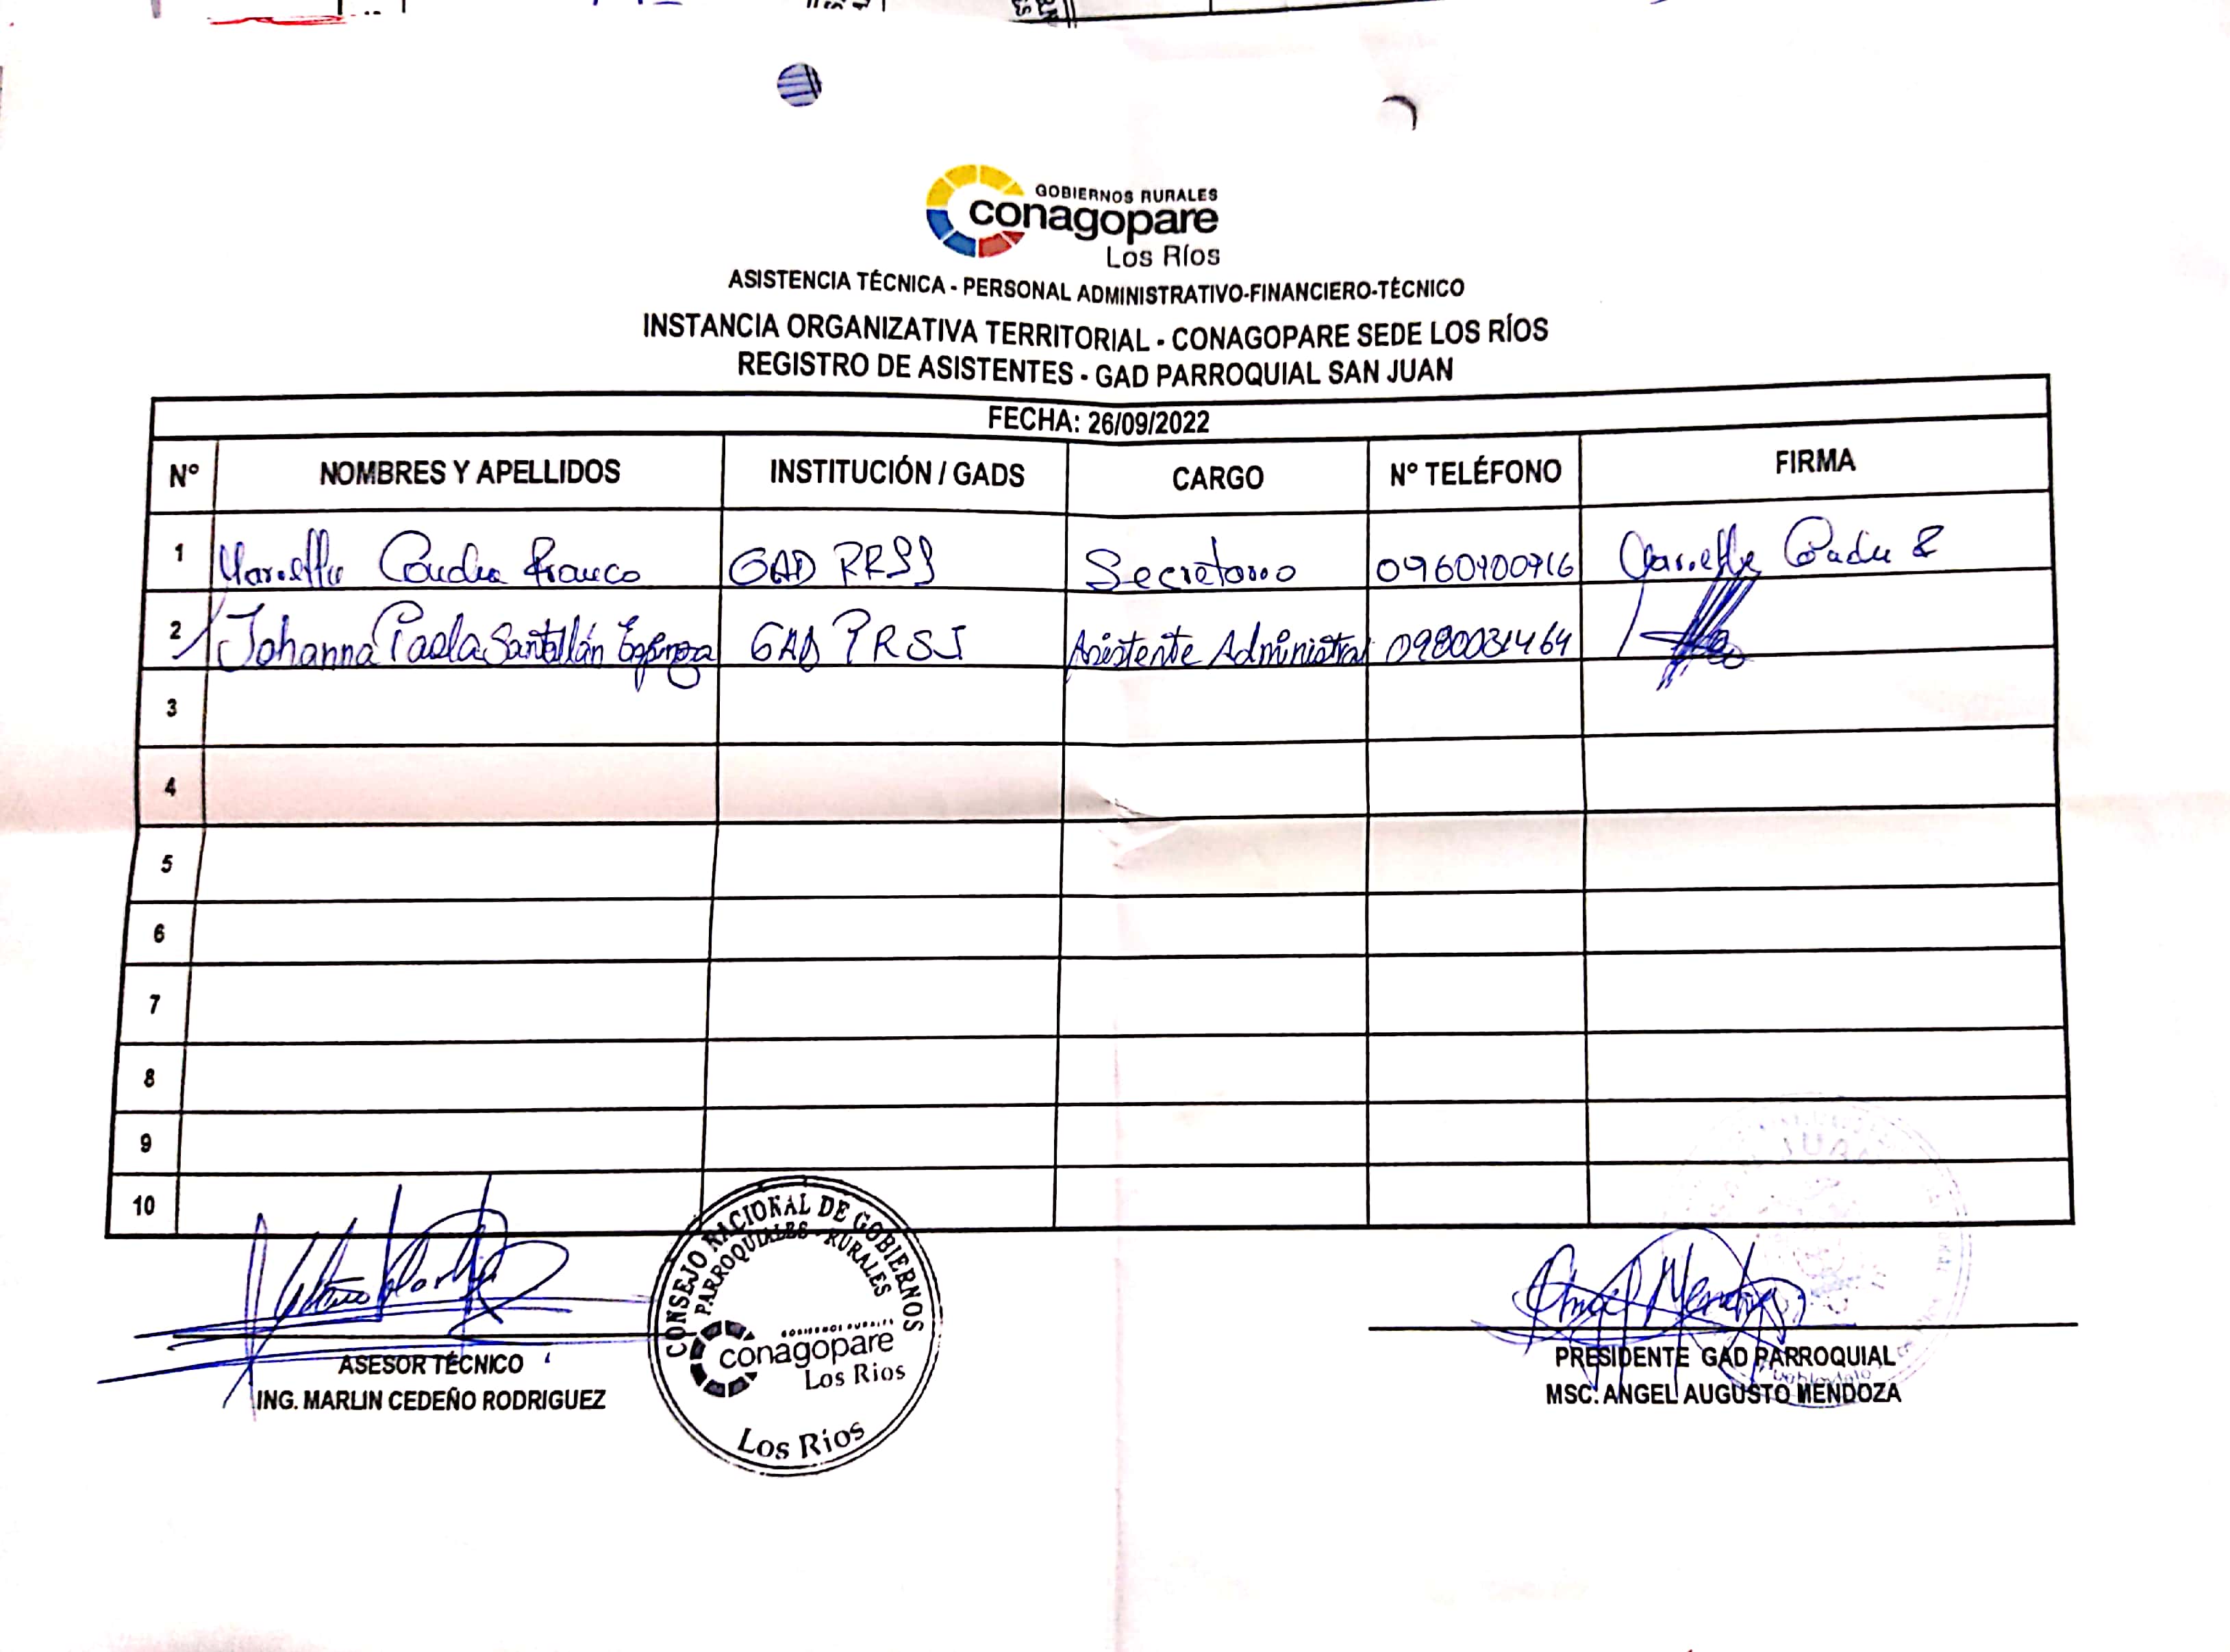 GOBIERNOS RURALES
conagopare
Los Ríos
ASISTENCIA TÉCNICA - PERSONAL ADMINISTRATIVO-FINANCIERO-TÉCNICO
INSTANCIA ORGANIZATIVA TERRITORIAL - CONAGOPARE SEDE LOS RÍOS
REGISTRO DE ASISTENTES - GAD PARROQUIAL SAN JUAN
FECHA: 26/09/2022
Nº NOMBRES Y APELLIDOS INSTITUCIÓN / GADS CARGO Nº TELÉFONO FIRMA
1 Franco GAD
2 Johanna Paola Santillán Espinoza GAD PRSJ Asistente Administrat
3
4
5
6
7
8
9
10
CONSEJO NACIONAL DE GOBIERNOS
PARROQUIALES - RURALES
GOBIERNOS RURALES
conagopare
Los Rios
Los Ríos
Angel Mendoza
ASESOR TÉCNICO
ING. MARLIN CEDEÑO RODRIGUEZ
PRESIDENTE GAD PARROQUIAL
MSC. ANGEL AUGUSTO MENDOZA